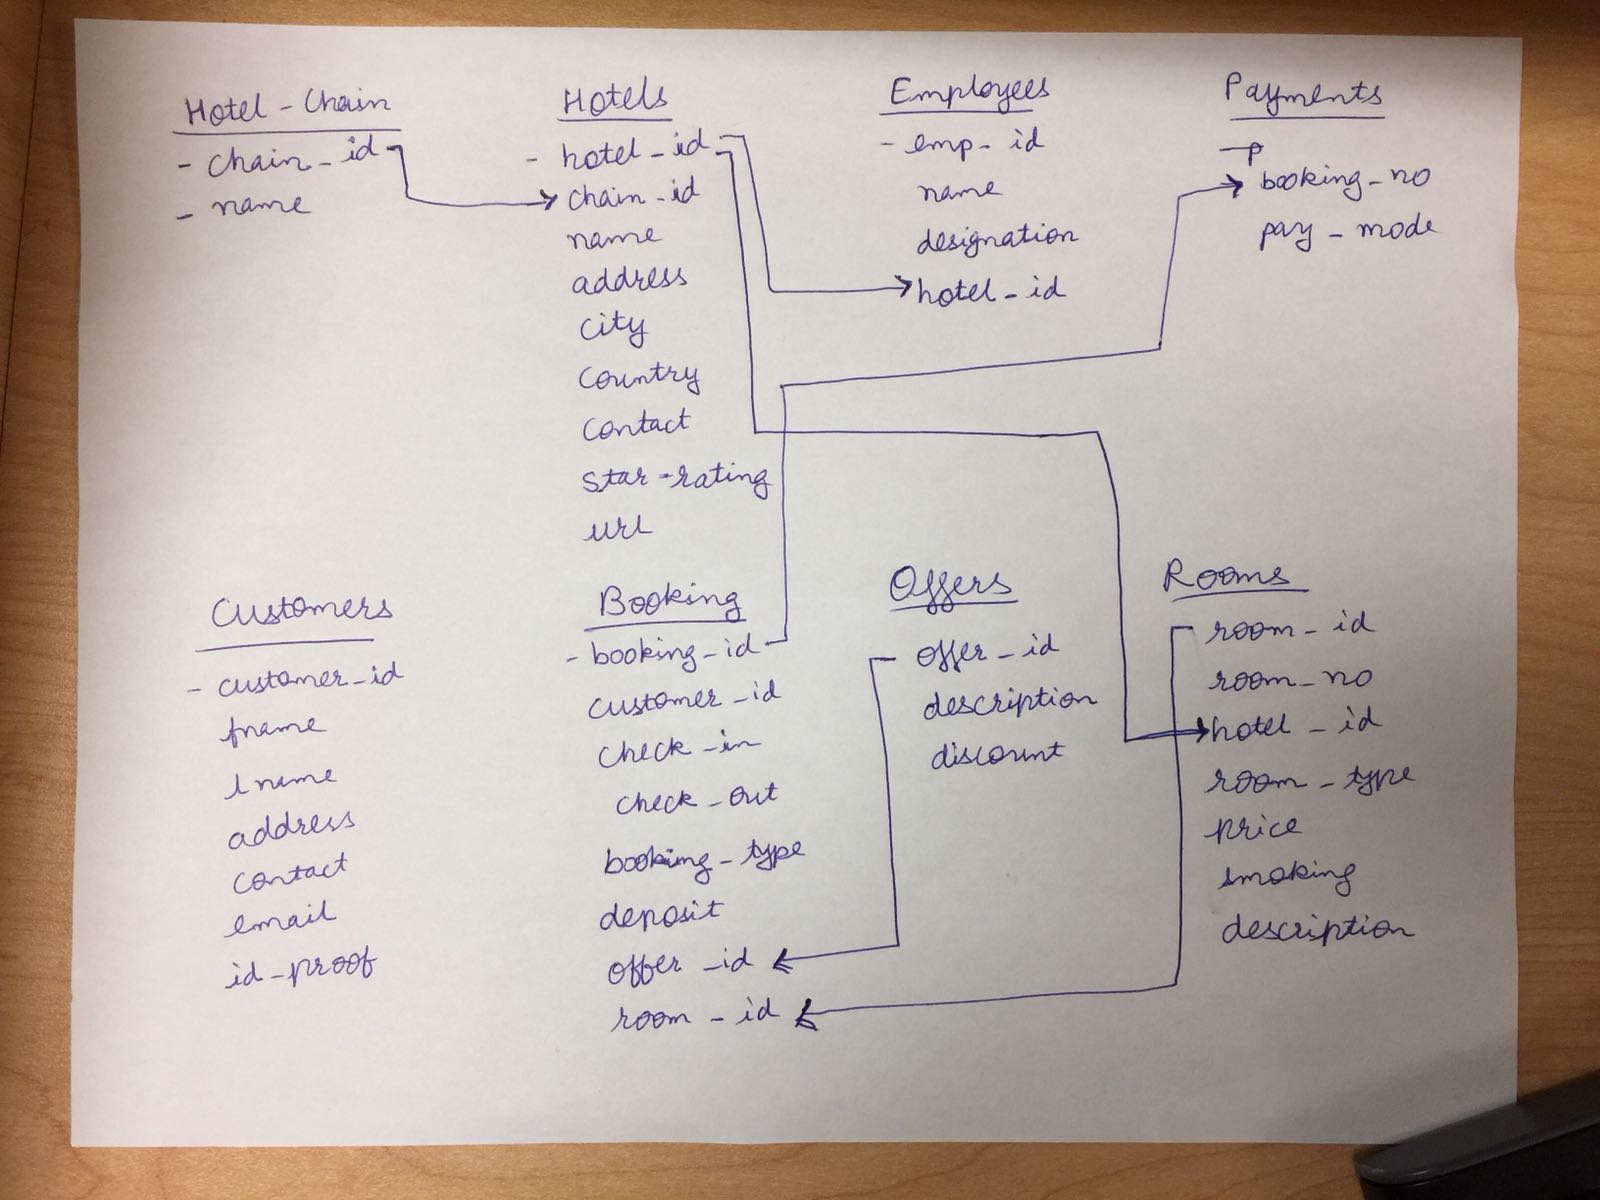 Hotel - Chain
- chain_id
- name
Hotels
- hotel_id
chain_id
name
address
city
country
contact
star-rating
url
Employees
- emp_id
name
designation
hotel_id
Payments
- p
booking_no
pay_mode
Customers
- customer_id
fname
lname
address
contact
email
id_proof
Booking
- booking_id
customer_id
check_in
check_out
booking_type
deposit
offer_id
room_id
Offers
offer_id
description
discount
Rooms
room_id
room_no
hotel_id
room_type
price
smoking
description